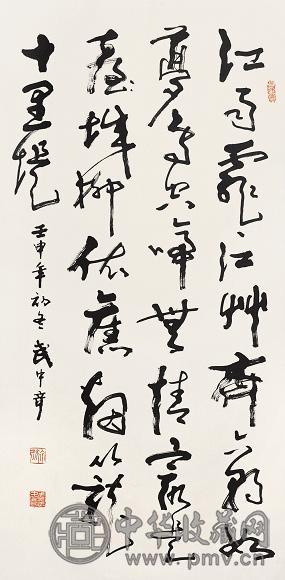 江雨霏霏江艸齊六朝如
夢鳥空啼無情最是
臺城柳依舊烟籠
十里堤
壬申年初冬 武中奇
中华收藏网
www.pmv.cn